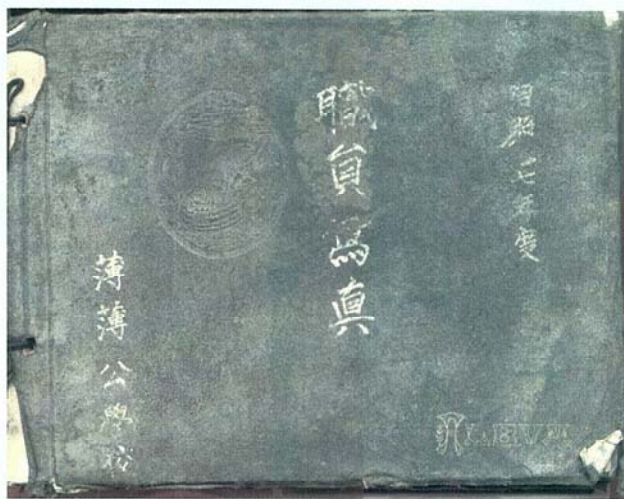 昭和七年度
職員寫真
薄薄公學校